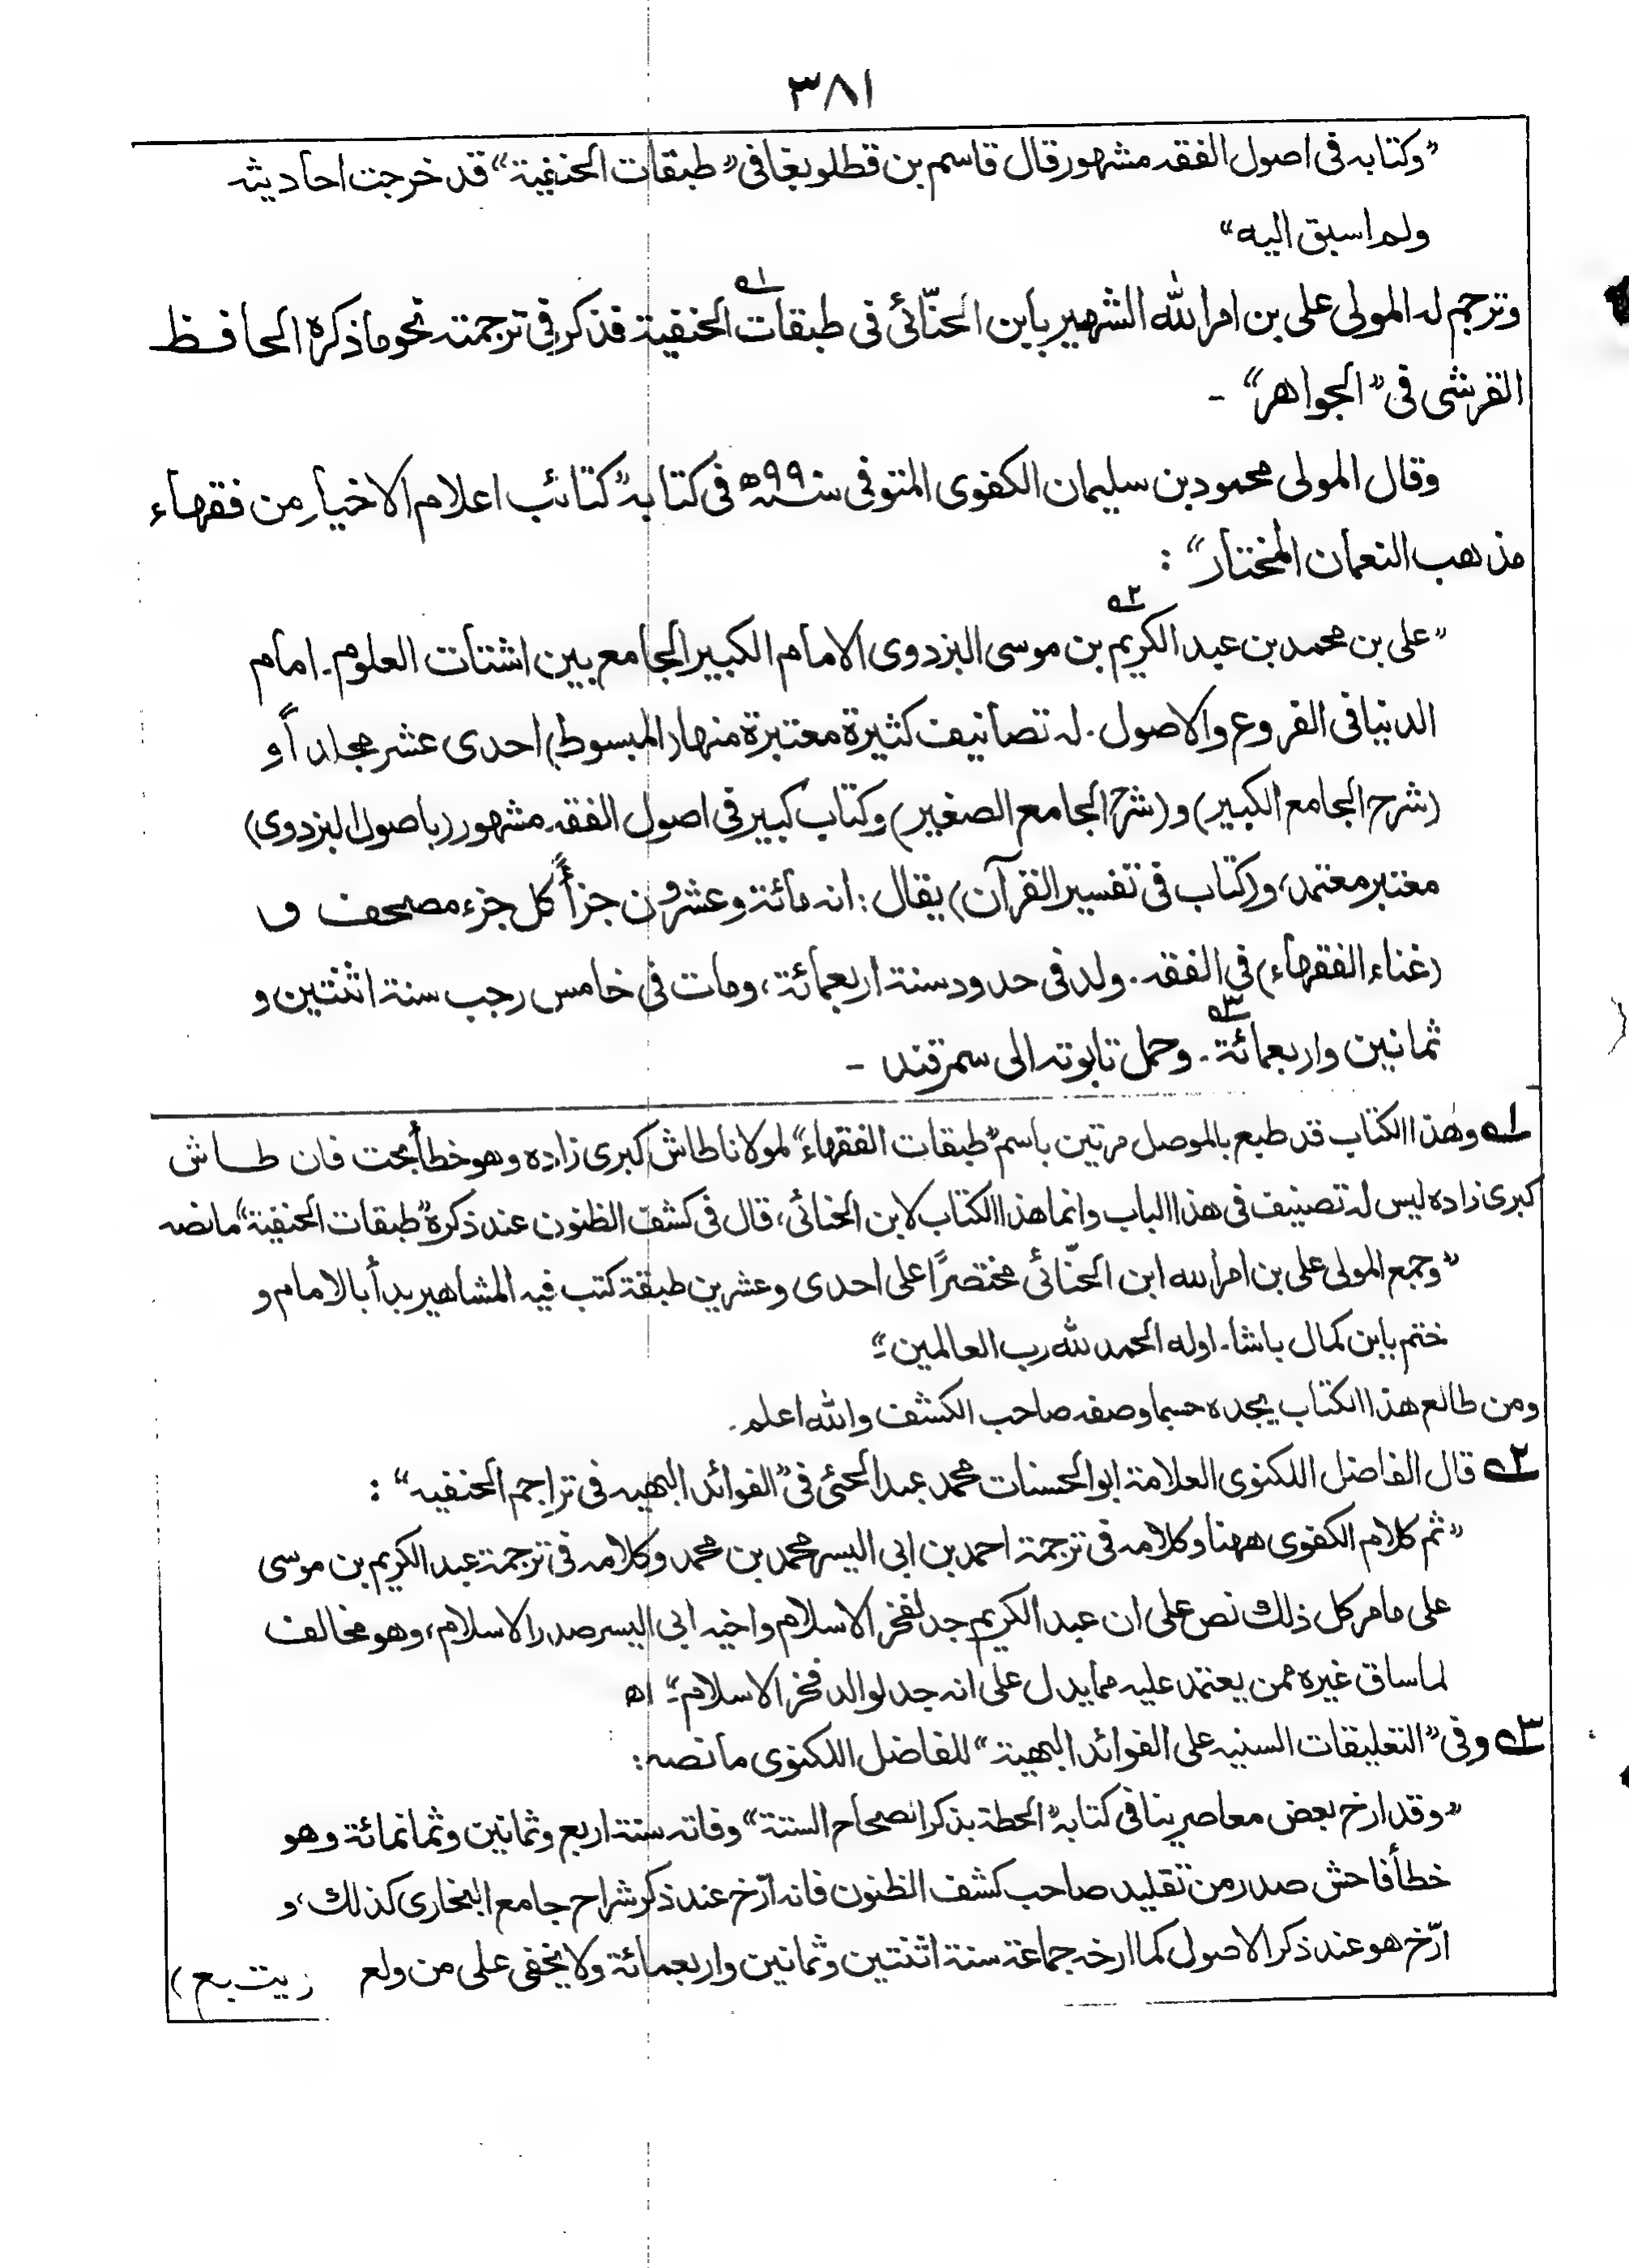 ٣٨١
”وكتابه فى اصول الفقه مشهور قال قاسم بن قطلوبغا فى ”طبقات الحنفية“ قد خرجت احاديثه
ولم اسبق اليه“
وترجم له المولى على بن امر الله الشهير بابن الحنّائى فى طبقات الحنفية ١ه فذكر فى ترجمته نحو ما ذكره الحافظ
القرشى فى ”الجواهر“ -
وقال المولى محمود بن سليمان الكفوى المتوفى سنة ٩٩٠ه فى كتابه ”كتائب اعلام الاخيار من فقهاء
مذهب النعمان المختار“ :
”على بن محمد بن عبد الكريم ٢ه بن موسى البزدوى الامام الكبير الجامع بين اشتات العلوم. امام
الدنيا فى الفروع والاصول. له تصانيف كثيرة معتبرة منها (المبسوط) احدى عشر مجلداً و
(شرح الجامع الكبير) و (شرح الجامع الصغير) وكتاب كبير فى اصول الفقه مشهور (باصول البزدوى)
معتبر معتمد، و (كتاب فى تفسير القرآن) يقال: انه مائة وعشرون جزأً كل جزء مصحف و
(غناء الفقهاء) فى الفقه. ولد فى حدود سنة اربعمائة، ومات فى خامس رجب سنة اثنتين و
ثمانين واربعمائة ٣ه. وحمل تابوته الى سمرقند -
١ه وهذا الكتاب قد طبع بالموصل مرتين باسم ”طبقات الفقهاء“ لمولانا طاش كبرى زاده وهو خطأ بحت فان طاش
كبرى زاده ليس له تصنيف فى هذا الباب وانما هذا الكتاب لابن الحنائى، قال فى كشف الظنون عند ذكره ”طبقات الحنفية“ ما نصه
”وجمع المولى على بن امر الله ابن الحنّائى مختصرًا على احدى وعشرين طبقة كتب فيه المشاهير بدأ بالامام و
ختم بابن كمال باشا. اوله الحمد لله رب العالمين“-
ومن طالع هذا الكتاب يجده حسبما وصفه صاحب الكشف والله اعلم.
٢ه قال الفاضل اللكنوى العلامة ابو الحسنات محمد عبد الحئى فى ”الفوائد البهيه فى تراجم الحنفيه“ :
”ثم كلام الكفوى ههنا وكلامه فى ترجمة احمد بن ابى اليسر محمد بن محمد وكلامه فى ترجمة عبد الكريم بن موسى
على ما مر كل ذلك نص على ان عبد الكريم جد لفخر الاسلام واخيه ابى اليسر صدر الاسلام، وهو مخالف
لما ساق غيره ممن يعتمد عليه مما يدل على انه جد لوالد فخر الاسلام“- اه
٣ه وفى ”التعليقات السنيه على الفوائد البهية“ للفاضل اللكنوى ما نصه:
”وقد ارخ بعض معاصرينا فى كتابه ”الحطة بذكر الصحاح الستة“ وفاته سنة اربع وثمانين وثمانمائة وهو
خطأ فاحش صدر من تقليد صاحب كشف الظنون فانه ارّخ عند ذكر شراح جامع البخارى كذلك، و
ارّخ هو عند ذكر الاصول كما ارخه جماعة سنة اثنتين وثمانين واربعمائة ولا يخفى على من ولع (يتبع)